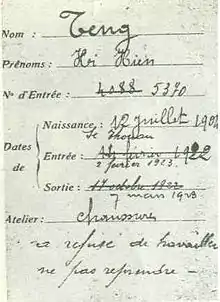 Nom : Teng
Prénoms : Hi Hien
N° d'Entrée : 4088 5370
Naissance : 12 juillet 190
Dates de
Entrée : 1922
2 février 1923
Sortie : 17 octobre 1922
7 mars 1923
Atelier : chaussures
a refusé de travailler
ne pas reprendre -